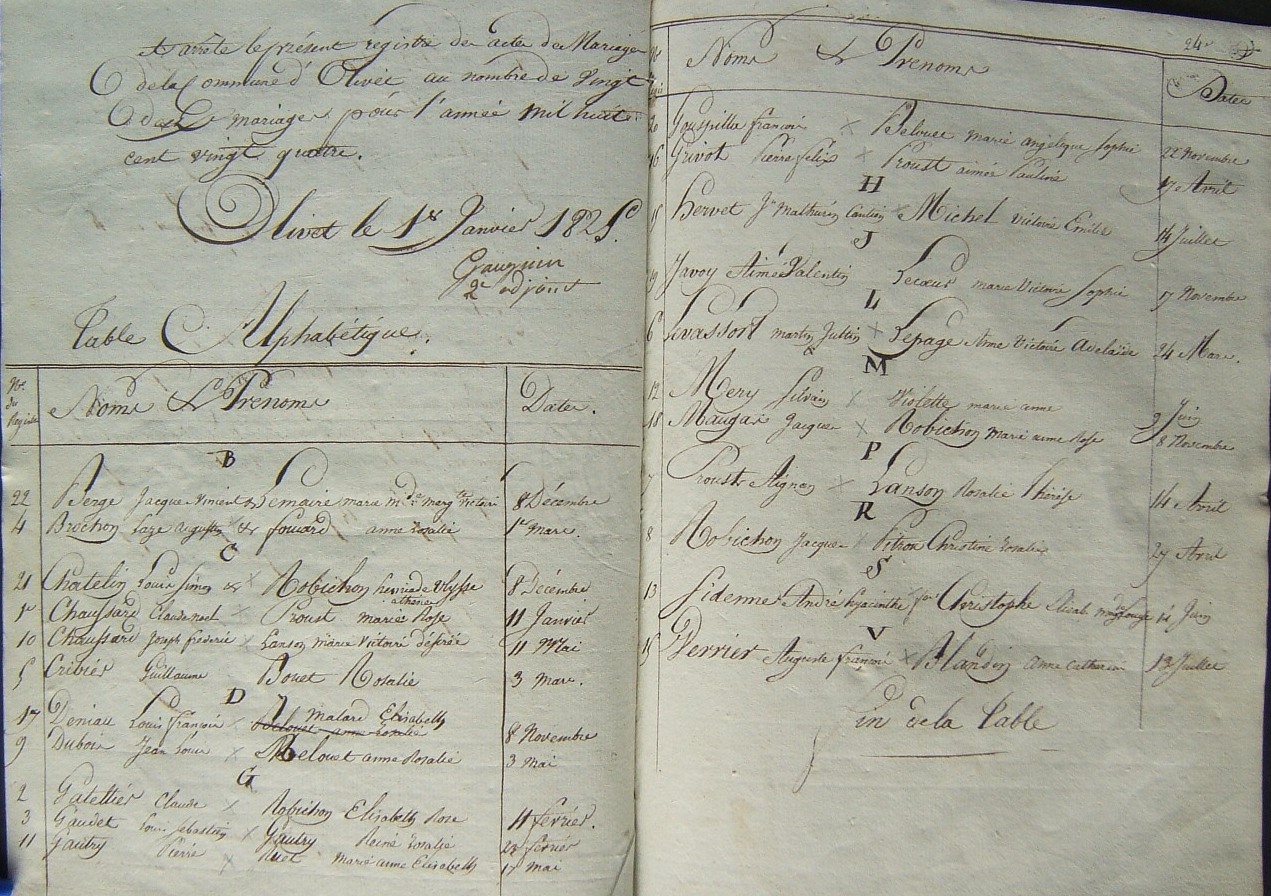 arrêté le présent registre des actes de Mariages
de la Commune d'Olivet au nombre de vingt
deux mariages pour l'année mil huit
cent vingt quatre.
Olivet le 1er Janvier 1825.
2e adjoint
Table Alphabétique.
Nos du Registre Noms & Prénoms Dates.
B
22 Berge Jacques Vincent & Lemaire marie Victoire 8 Décembre
4 Brochon Augustin & fouard anne Rosalie 1er Mars.
C
21 Chatelin Louis Simon & Robichon Ulysse 8 Décembre
1er Chaussard Claude Noel Proust mariée Rose 11 Janvier
10 Chaussard Joseph frederic Lanson Marie Victoire désirée 11 Mai
5 Cribier Guillaume Bouet Rosalie 3 Mars.
D
17 Deniau Louis françois Malard Elisabeth 8 Novembre
Belouet anne Rosalie
9 Dubois Jean Louis Belouet anne Rosalie 3 Mai
G
2 Gatellier Claude Robichon Elisabeth Rose 11 février.
3 Gaudet Louis Sebastien Gautry Reine Rosalie février
11 Gautry Pierre Ruet Marie anne Elisabeth 17 Mai
24e
Noms & Prénoms Dates
20 Gouspilla françois Belouet marie angélique Sophie 22 Novembre
16 Grivot Pierre felix Proust aimée Pauline 17 Avril
H
15 Hervet Jn Mathurin Michel Victoire Emilie 14 Juillet
J
19 Javoy Aimé Valentin Lecœur marie Victoire Sophie 17 Novembre
L
6 Levassort martin Justin Lepage Anne Victoire Adelaïde 24 Mars.
M
12 Mery Silvain Violette marie anne 9 Juin
18 Maugas Jacques Robichon Marie anne Rose 8 Novembre
P
7 Proust Aignan Lanson Rosalie Thérèse 14 Avril
R
8 Robichon Jacques Pitron Christine Rosalie 27 Avril
S
13 Sidenne André hyacinthe Christophe 14 Juin
V
Verrier Auguste françois Blandin anne Catherine 13 Juillet
Fin de la Table